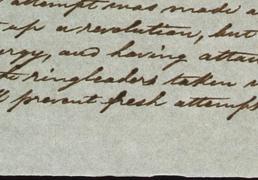 attempt was made a
up a revolution, but
ergy, and having attai
ringleaders taken
prevent fresh attempt